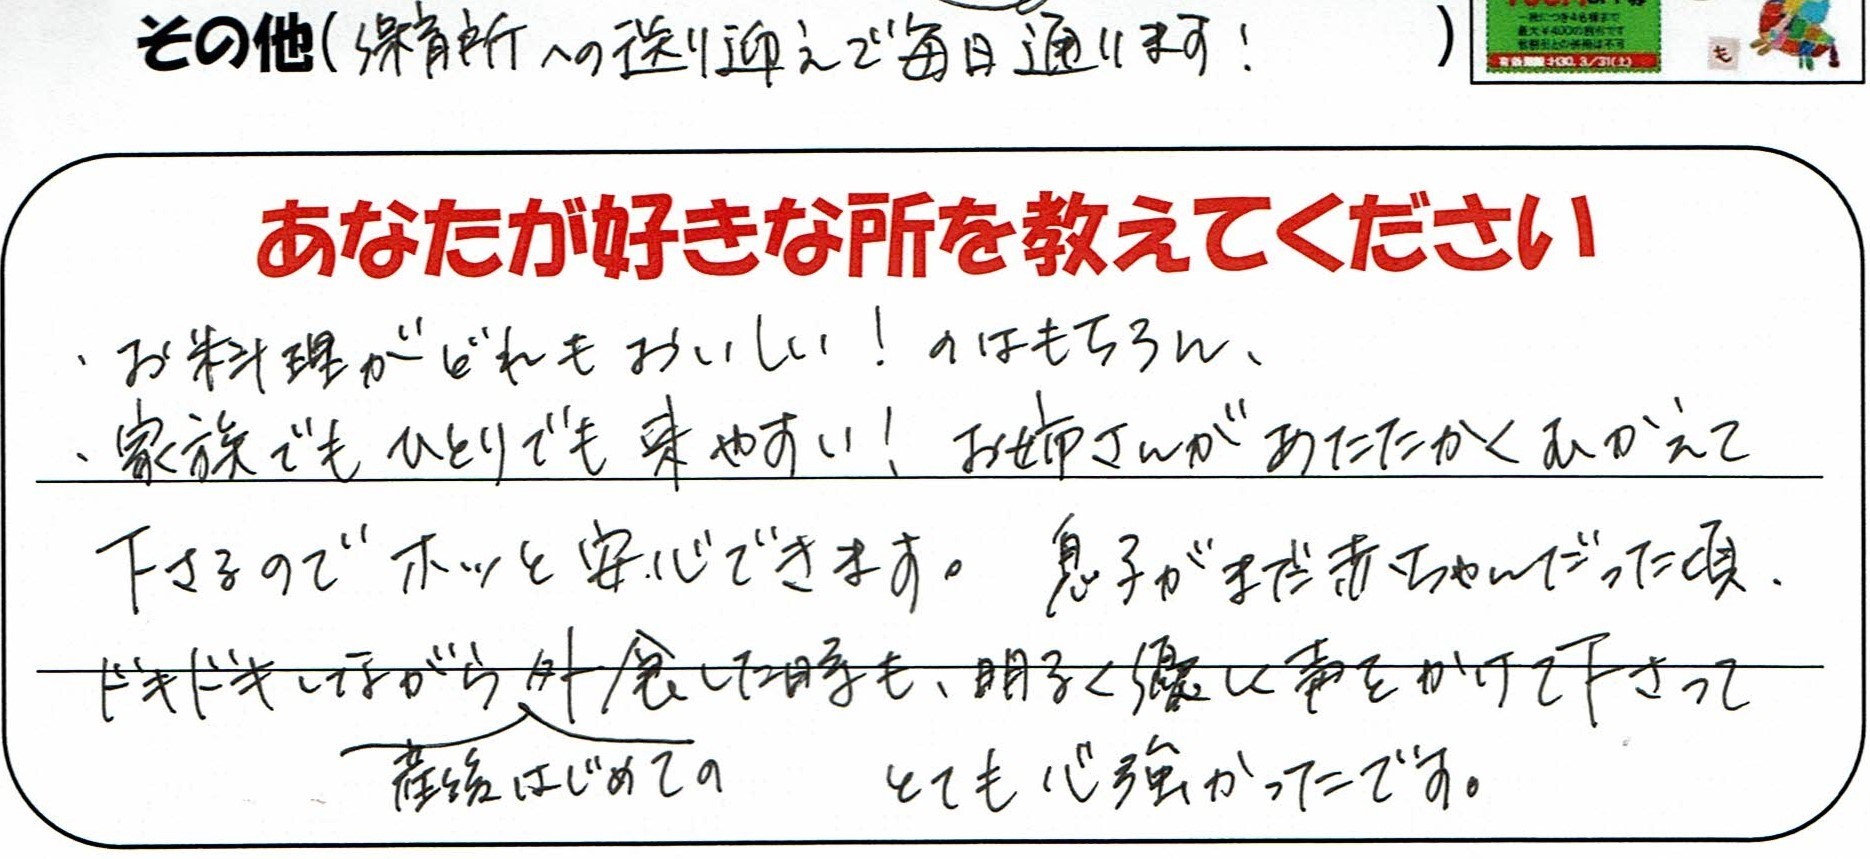 その他(保育所への送り迎えで毎日通ります! )
一枚につき4名様まで
最大¥400の割引です
他割引との併用は不可
有効期限:H30.3/31(土)
も
あなたが好きな所を教えてください
・お料理がどれもおいしい!のはもちろん、
・家族でもひとりでも来やすい! お姉さんがあたたかくむかえて
下さるのでホッと安心できます。 息子がまだ赤ちゃんだった頃、
ドキドキしながら外食した時も、明るく優しく声をかけて下さって
産後はじめての とても心強かったです。